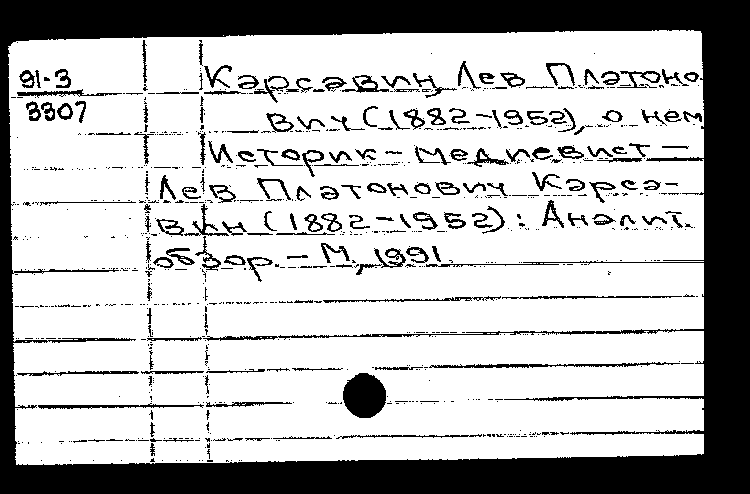 91-3
3307
Карсавин, Лев Платоно-
вич (1882-1952), о нем
Историк-медиевист —
Лев Платонович Карса-
вин (1882-1952): Аналит.
обзор. - М., 1991.